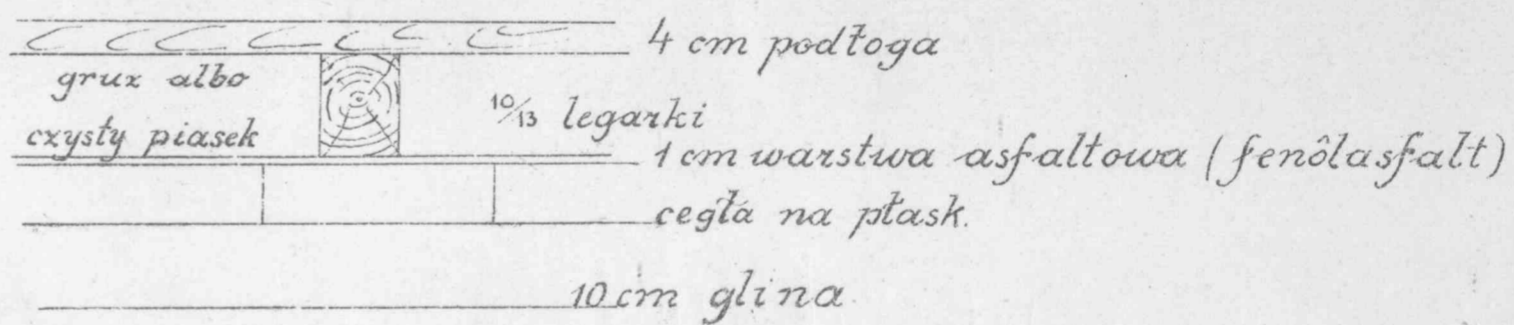 4 cm podłoga
grux albo
czysty piasek
10/13 legarki
1 cm warstwa asfaltowa (fenôlasfalt)
cegła na płask.
10 cm glina